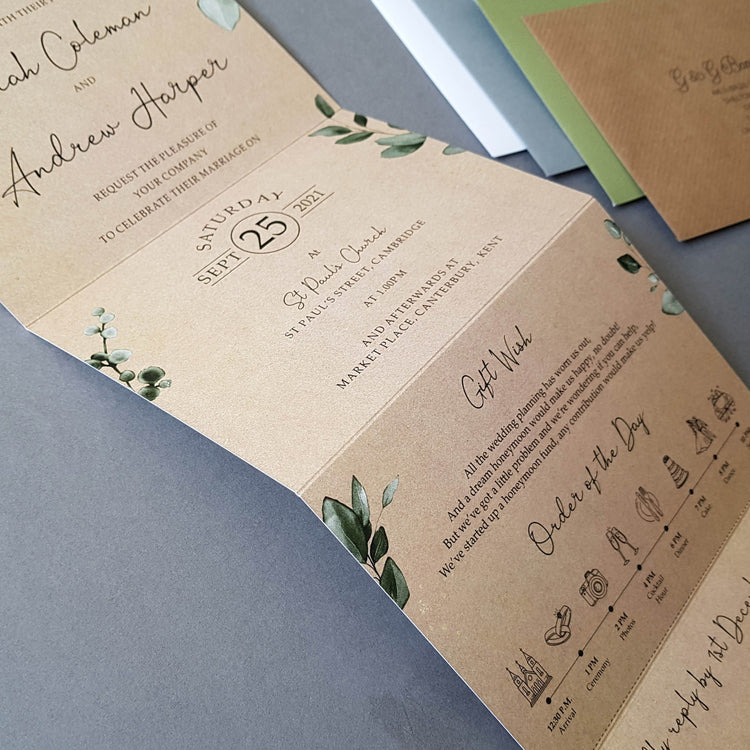 WITH THEIR
Coleman
AND
Andrew Harper
REQUEST THE PLEASURE OF
YOUR COMPANY
TO CELEBRATE THEIR MARRIAGE ON
SATURDAY
SEPT 25 2021
AT
St Pauls Church
ST PAUL'S STREET, CAMBRIDGE
AT 1.00PM
AND AFTERWARDS AT
MARKET PLACE, CANTERBURY, KENT
Gift Wish
All the wedding planning has worn us out,
And a dream honeymoon would make us happy, no doubt!
But we've got a little problem and we're wondering if you can help,
We've started up a honeymoon fund, any contribution would make us yelp!
Order of the Day
12:30 P.M.
Arrival
1 PM
Ceremony
2 PM
Photos
4 PM
Cocktail
Hour
6 PM
Dinner
7 PM
Cake
8 PM
Dance
reply by 1st Dece
G & G Boo